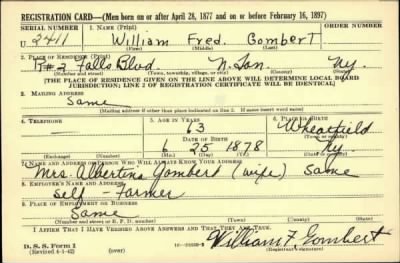 REGISTRATION CARD—(Men born on or after April 28, 1877 and on or before February 16, 1897)
SERIAL NUMBER 1. NAME (Print) ORDER NUMBER
U 2411 William Fred. Gombert
(First) (Middle) (Last)
2. PLACE OF RESIDENCE (Print)
R#2 Falls Blvd. N. Ton. Ny.
(Number and street) (Town, township, village, or city) (County) (State)
[THE PLACE OF RESIDENCE GIVEN ON THE LINE ABOVE WILL DETERMINE LOCAL BOARD
JURISDICTION; LINE 2 OF REGISTRATION CERTIFICATE WILL BE IDENTICAL]
3. MAILING ADDRESS
Same
[Mailing address if other than place indicated on line 2. If same insert word same]
4. TELEPHONE 5. AGE IN YEARS 6. PLACE OF BIRTH
— 63 Wheatfield
DATE OF BIRTH (Town or county)
6 25 1878 Ny.
(Exchange) (Number) (Mo.) (Day) (Yr.) (State or country)
7. NAME AND ADDRESS OF PERSON WHO WILL ALWAYS KNOW YOUR ADDRESS
Mrs. Albertina Gombert (wife) Same
8. EMPLOYER'S NAME AND ADDRESS
Self - Farmer
9. PLACE OF EMPLOYMENT OR BUSINESS
Same
(Number and street or R. F. D. number) (Town) (County) (State)
I AFFIRM THAT I HAVE VERIFIED ABOVE ANSWERS AND THAT THEY ARE TRUE.
D. S. S. Form 1
(Revised 4-1-42) (over) William F Gombert
(Registrant's signature)